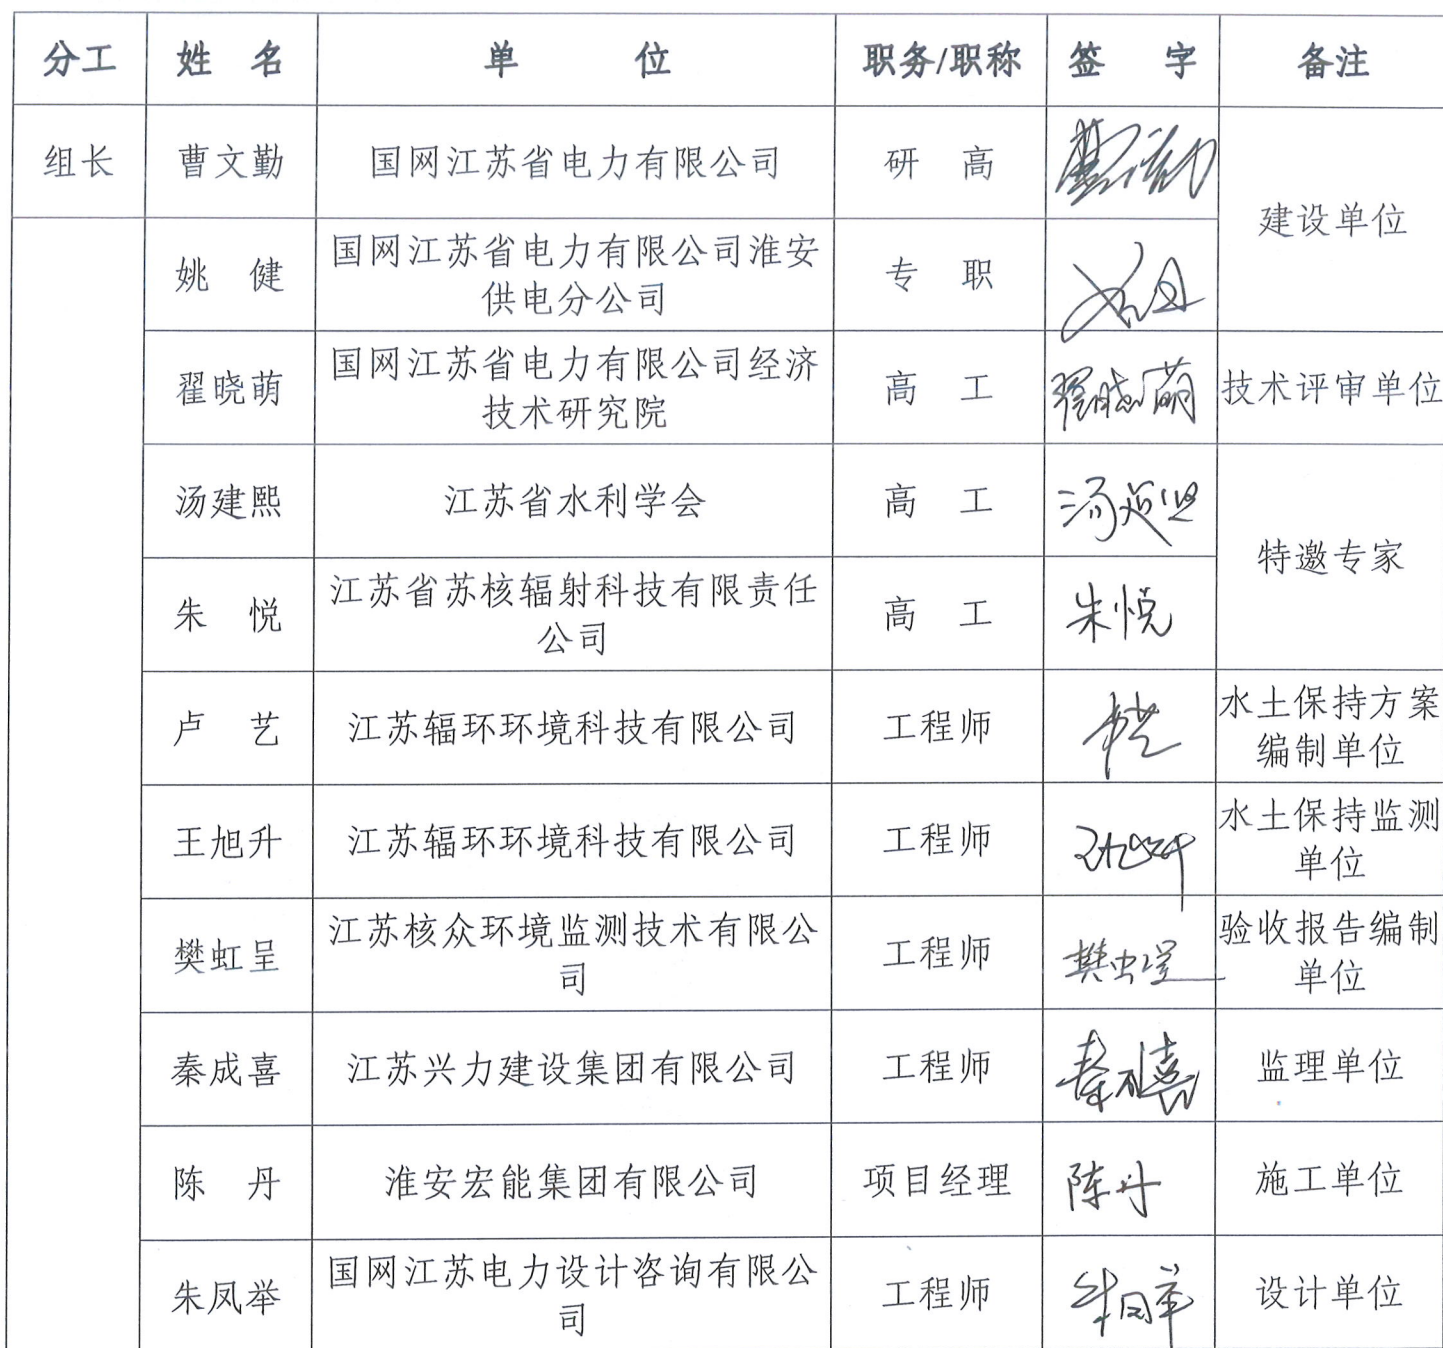 分工 姓 名 单 位 职务/职称 签 字 备注
组长 曹文勤 国网江苏省电力有限公司 研 高
建设单位
姚 健 国网江苏省电力有限公司淮安
供电分公司 专 职
翟晓萌 国网江苏省电力有限公司经济
技术研究院 高 工 翟晓萌 技术评审单位
汤建熙 江苏省水利学会 高 工
特邀专家
朱 悦 江苏省苏核辐射科技有限责任
公司 高 工 朱悦
卢 艺 江苏辐环环境科技有限公司 工程师 水土保持方案
编制单位
王旭升 江苏辐环环境科技有限公司 工程师 王旭升 水土保持监测
单位
樊虹呈 江苏核众环境监测技术有限公
司 工程师 樊虹呈 验收报告编制
单位
秦成喜 江苏兴力建设集团有限公司 工程师 秦成喜 监理单位
陈 丹 淮安宏能集团有限公司 项目经理 陈丹 施工单位
朱凤举 国网江苏电力设计咨询有限公
司 工程师 朱凤举 设计单位